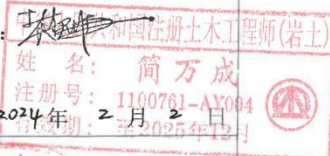 中华人民共和国注册土木工程师(岩土)
姓 名: 简万成
注册号: 1100761-AY004
2024年 2月 2日
有效期: 至2025年12月